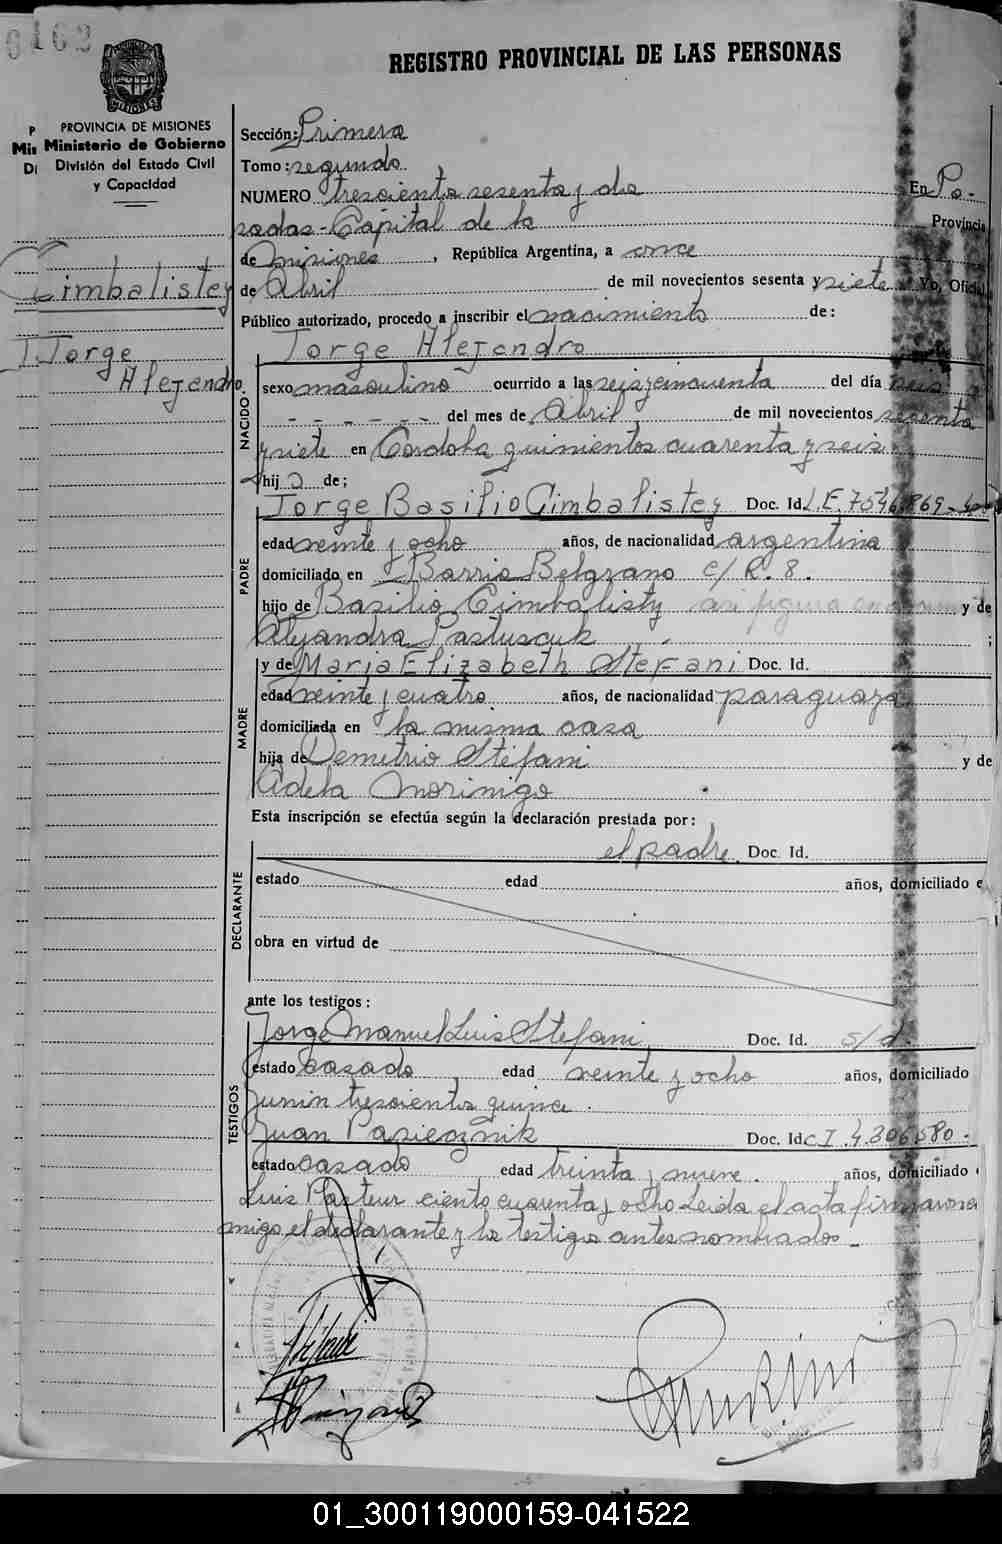 6162
REGISTRO PROVINCIAL DE LAS PERSONAS
MISIONES
PROVINCIA DE MISIONES
Ministerio de Gobierno
División del Estado Civil
y Capacidad
Cimbalistey
Jorge
Alejandro
Sección: Primera
Tomo: segundo
NUMERO trescientos sesenta y dos En Po-
sadas-Capital de la Provincia
de Misiones, República Argentina, a once
de Abril de mil novecientos sesenta y siete Yo, Oficial
Público autorizado, procedo a inscribir el nacimiento de:
Jorge Alejandro
NACIDO
sexo masculino ocurrido a las seis y cincuenta del día seis
del mes de Abril de mil novecientos sesenta
y siete en Cordoba quinientos cuarenta y seis
hijo de;
PADRE
Jorge Basilio Cimbalistey Doc. Id. L.E. 7546869
edad veinte y ocho años, de nacionalidad argentina
domiciliado en Barrio Belgrano c/ R. 8.
hijo de Basilio Cimbalisty asi figura y de
Alejandra Pastuscuk ;
MADRE
y de Maria Elizabeth Stefani Doc. Id.
edad veinte y cuatro años, de nacionalidad paraguaya
domiciliada en la misma casa
hija de Demetrio Stefani y de
Adela Morinigo
Esta inscripción se efectúa según la declaración prestada por:
DECLARANTE
el padre. Doc. Id.
estado edad años, domiciliado e
obra en virtud de
ante los testigos:
TESTIGOS
Jorge Manuel Luis Stefani Doc. Id. s/d.
estado casado edad veinte y ocho años, domiciliado
Junin trescientos quince.
Juan Pasieoznik Doc. Id C I 4.306.580.-
estado casado edad treinta y nueve. años, domiciliado
Luis Pasteur ciento cuarenta y ocho Leida el acta firmaron con
migo el declarante y los testigos antes nombrados-
01_300119000159-041522